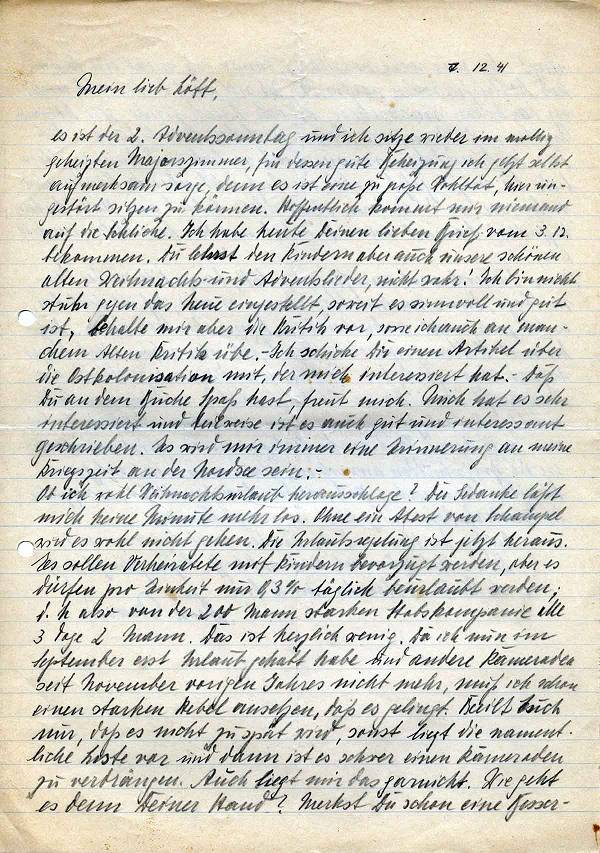 7. 12. 41
Mein lieb Löff,
es ist der 2. Adventssonntag und ich sitze wieder im mollig
geheizten Majorszimmer, für dessen gute Beheizung ich jetzt selbst
aufmerksam sorge, denn es ist eine zu große Wohltat, hier un-
gestört sitzen zu können. Hoffentlich kommt mir niemand
auf die Schliche. Ich habe heute Deinen lieben Brief vom 3. 12.
bekommen. Du lehrst den Kindern aber auch unsere schönen
alten Weihnachts- und Adventslieder, nicht wahr! Ich bin nicht
stur gegen das Neue eingestellt, soweit es sinnvoll und gut
ist, behalte mir aber die Kritik vor, so wie ich auch an man-
chem Alten Kritik übe. - Ich schicke Dir einen Artikel über
die Ostkolonisation mit, der mich interessiert hat. - Daß
Du an dem Buche Spaß hast, freut mich. Mich hat es sehr
interessiert und teilweise ist es auch gut und interessant
geschrieben. Es wird mir immer eine Erinnerung an meine
Kriegszeit an der Nordsee sein. -
Ob ich wohl Weihnachtsurlaub herausschlage? Der Gedanke läßt
mich keine Minute mehr los. Ohne ein Atest von
wird es wohl nicht gehen. Die Urlaubsregelung ist jetzt heraus.
Es sollen Verheiratete mit Kindern bevorzugt werden, aber es
dürfen pro Einheit nur 0,3% täglich beurlaubt werden,
d. h also von der 200 Mann starken Stabskompanie alle
3 Tage 2 Mann. Das ist herzlich wenig. Da ich nun im
September erst Urlaub gehabt habe und andere Kameraden
seit November vorigen Jahres nicht mehr, muß ich schon
einen starken Hebel ansetzen, daß es gelingt. Beeilt Euch
nur, daß es nicht zu spät wird, sonst liegt die nament-
liche Liste vor und dann ist es schwer einen Kameraden
zu verdrängen. Auch liegt mir das garnicht. Wie geht
es denn Deiner Hand? Merkst Du schon eine Besser-